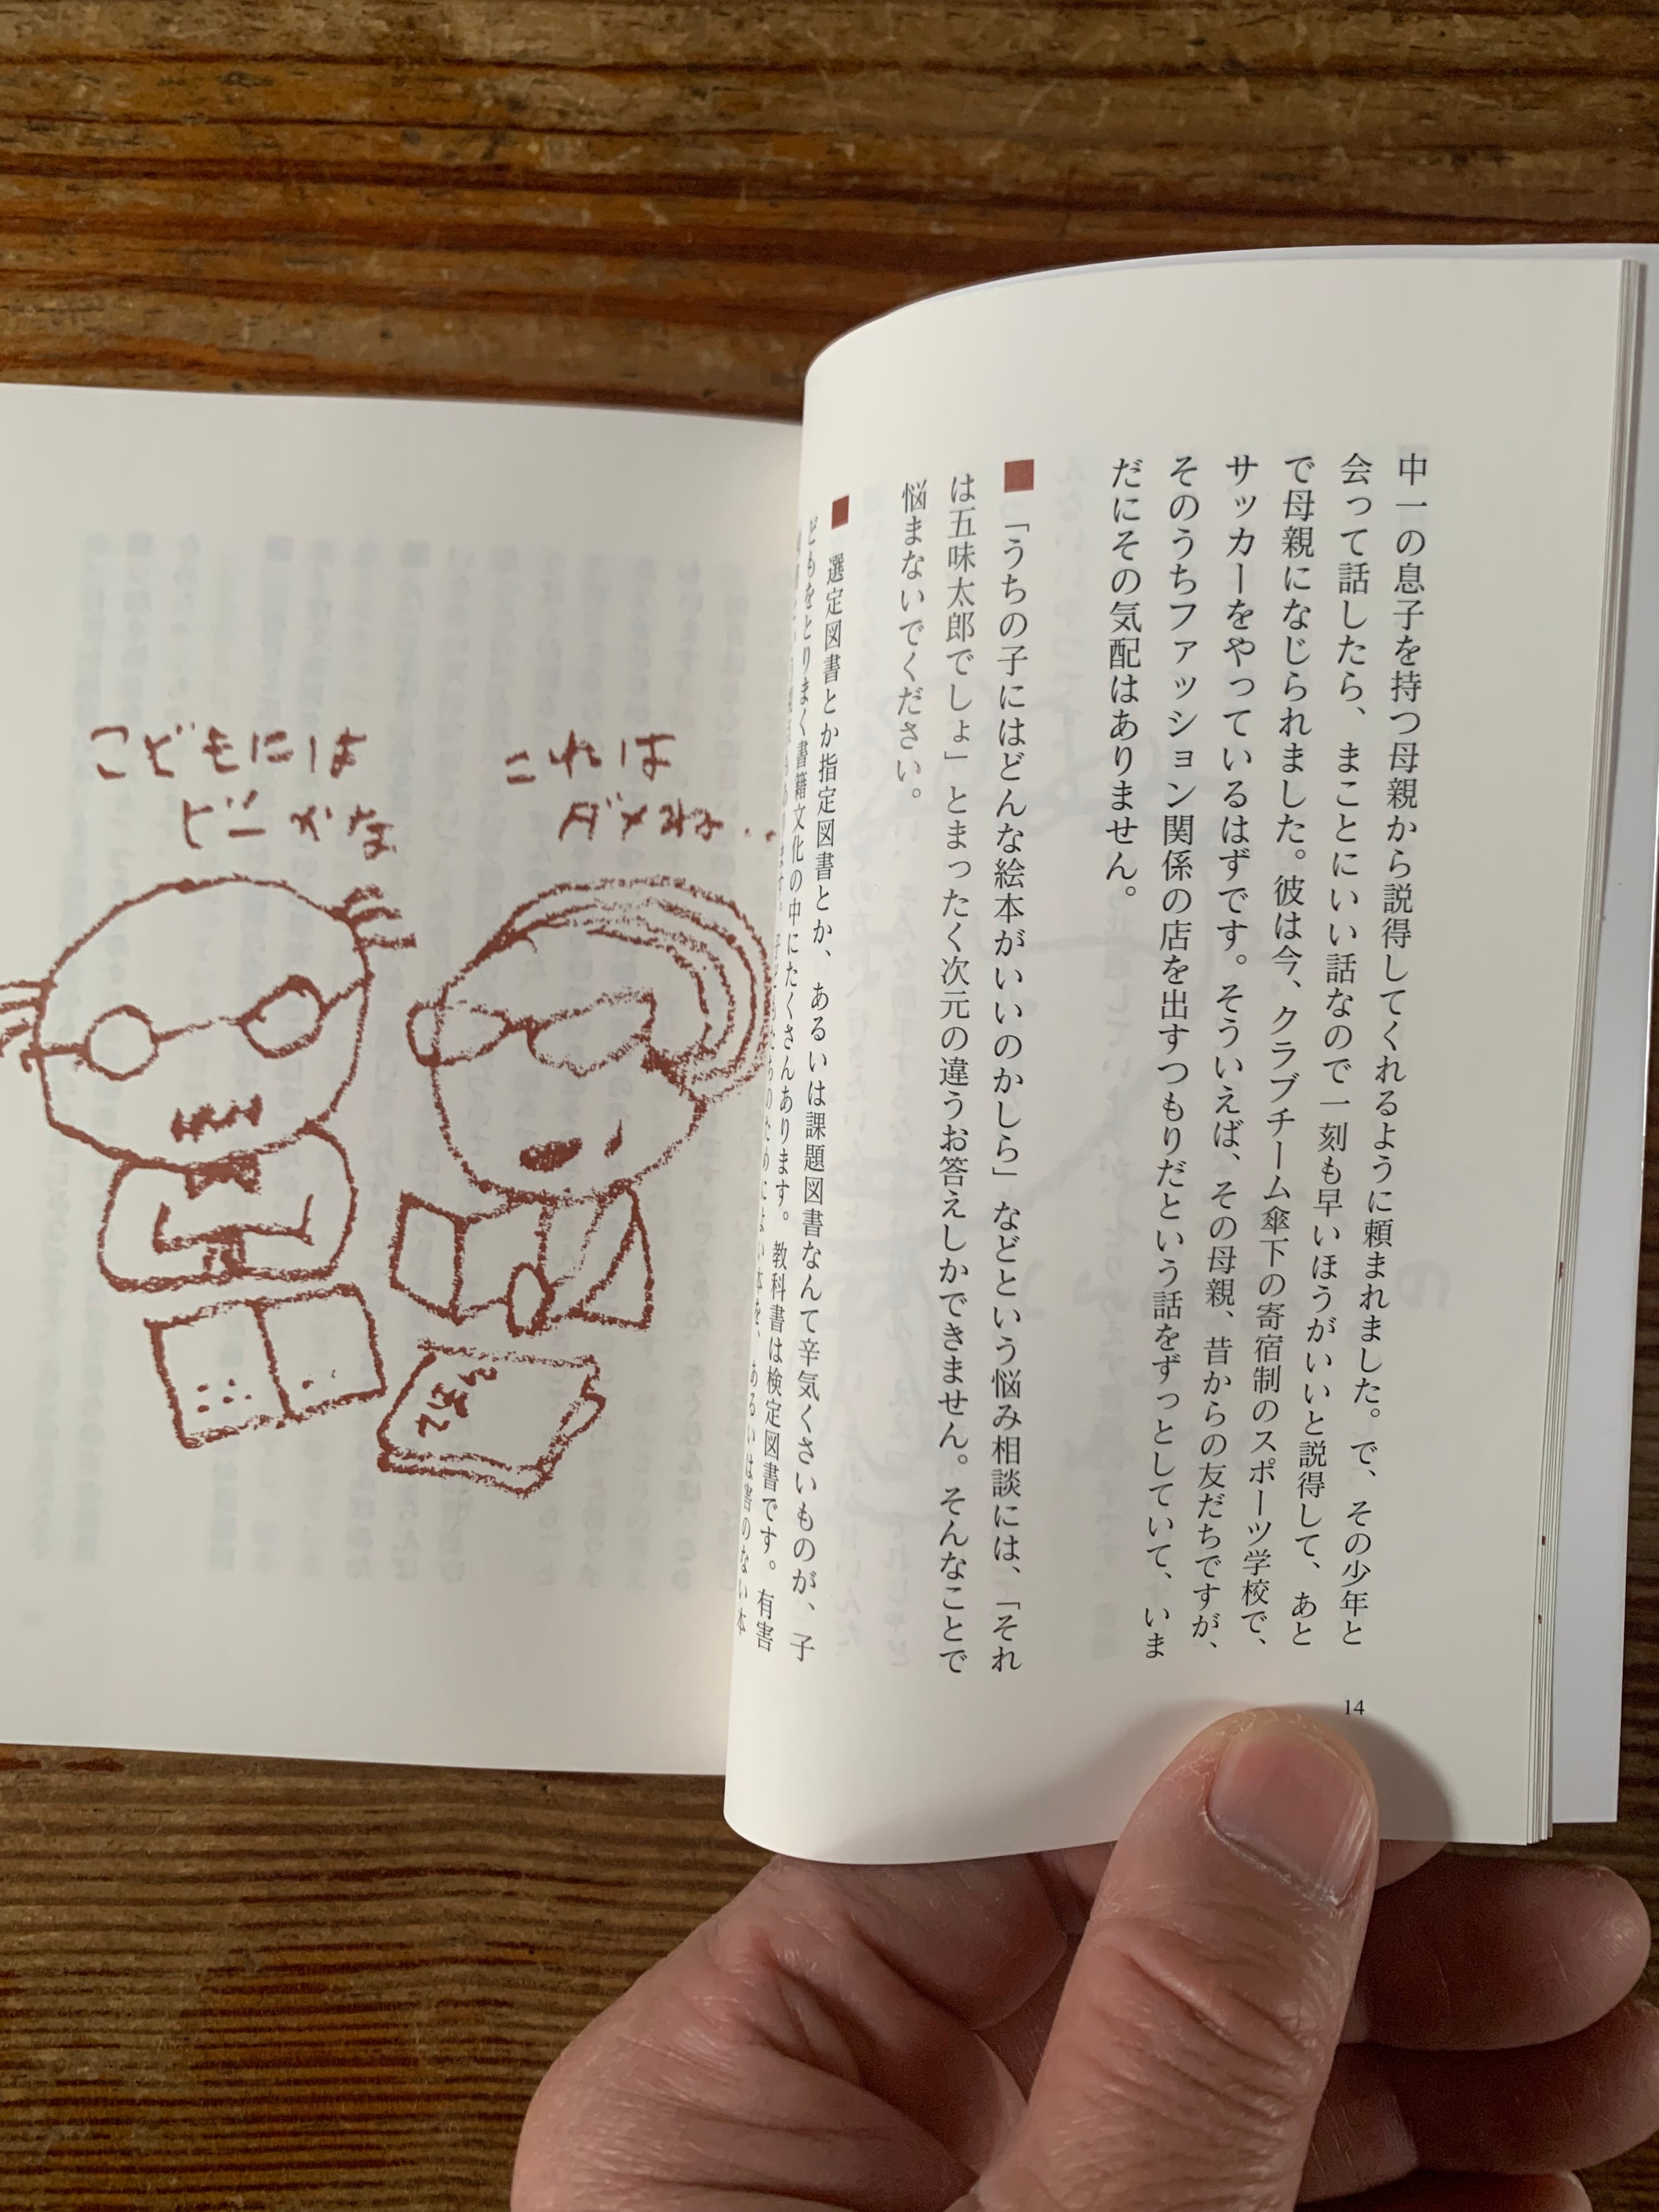 中一の息子を持つ母親から説得してくれるように頼まれました。で、その少年と
会って話したら、まことにいい話なので一刻も早いほうがいいと説得して、あと
で母親になじられました。彼は今、クラブチーム傘下の寄宿制のスポーツ学校で、
サッカーをやっているはずです。そういえば、その母親、昔からの友だちですが、
そのうちファッション関係の店を出すつもりだという話をずっとしていて、いま
だにその気配はありません。
■「うちの子にはどんな絵本がいいのかしら」などという悩み相談には、「それ
は五味太郎でしょ」とまったく次元の違うお答えしかできません。そんなことで
悩まないでください。
■選定図書とか指定図書とか、あるいは課題図書なんて辛気くさいものが、子
どもをとりまく書籍文化の中にたくさんあります。教科書は検定図書です。有害
子どもたちのためにはよい本を、あるいは害のない本
14
これは
ダメね..
こどもには
どーかな